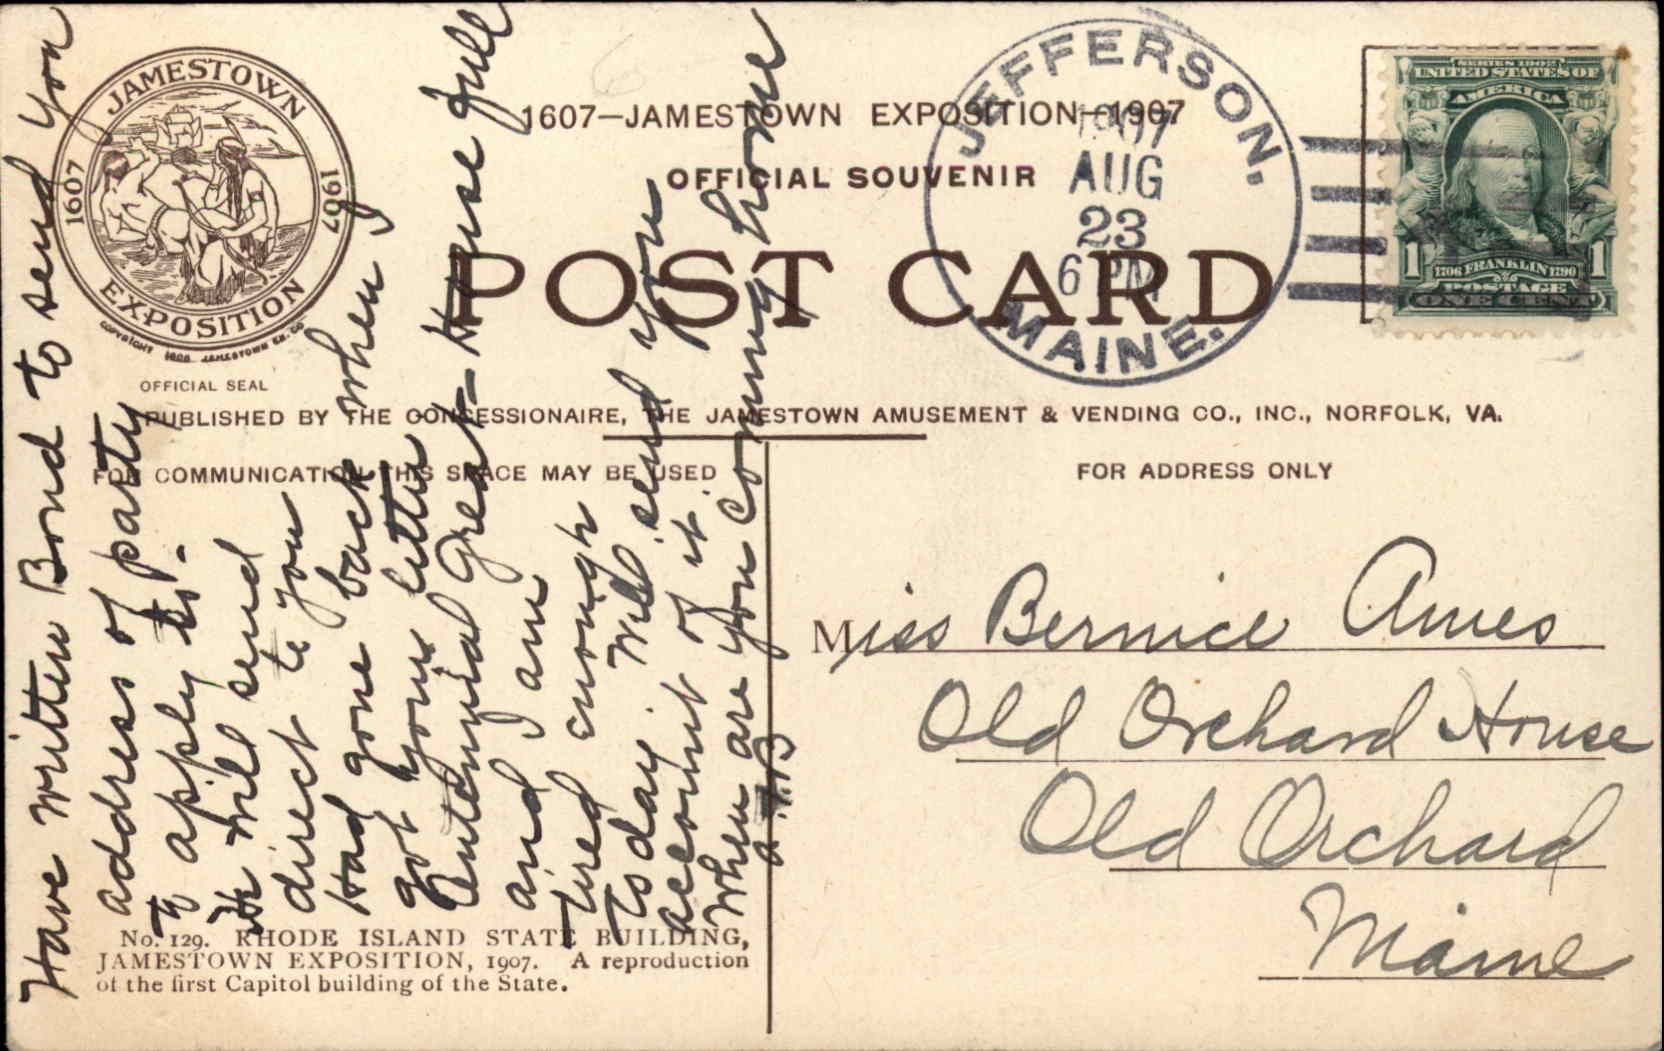 JAMESTOWN
1607
1907
EXPOSITION
COPYRIGHT 1906 JAMESTOWN EX. CO.
OFFICIAL SEAL
1607—JAMESTOWN EXPOSITION—1907
OFFICIAL SOUVENIR
POST CARD
JEFFERSON,
1907
AUG
23
6 PM
MAINE.
SERIES 1902
UNITED STATES OF
AMERICA
1 1706 FRANKLIN 1790 1
POSTAGE
ONE CENT
PUBLISHED BY THE CONCESSIONAIRE, THE JAMESTOWN AMUSEMENT & VENDING CO., INC., NORFOLK, VA.
FOR COMMUNICATION THIS SPACE MAY BE USED
FOR ADDRESS ONLY
Have written Bond to send you
address of party
to apply to -
He will send
direct to you
Had gone back when I
got your letter
Centennial great - House full
and I am
tired enough
to day. Will send you
account of it.
When are you coming home
Miss Bernice Ames
Old Orchard House
Old Orchard
Maine
No. 129. RHODE ISLAND STATE BUILDING,
JAMESTOWN EXPOSITION, 1907. A reproduction
of the first Capitol building of the State.